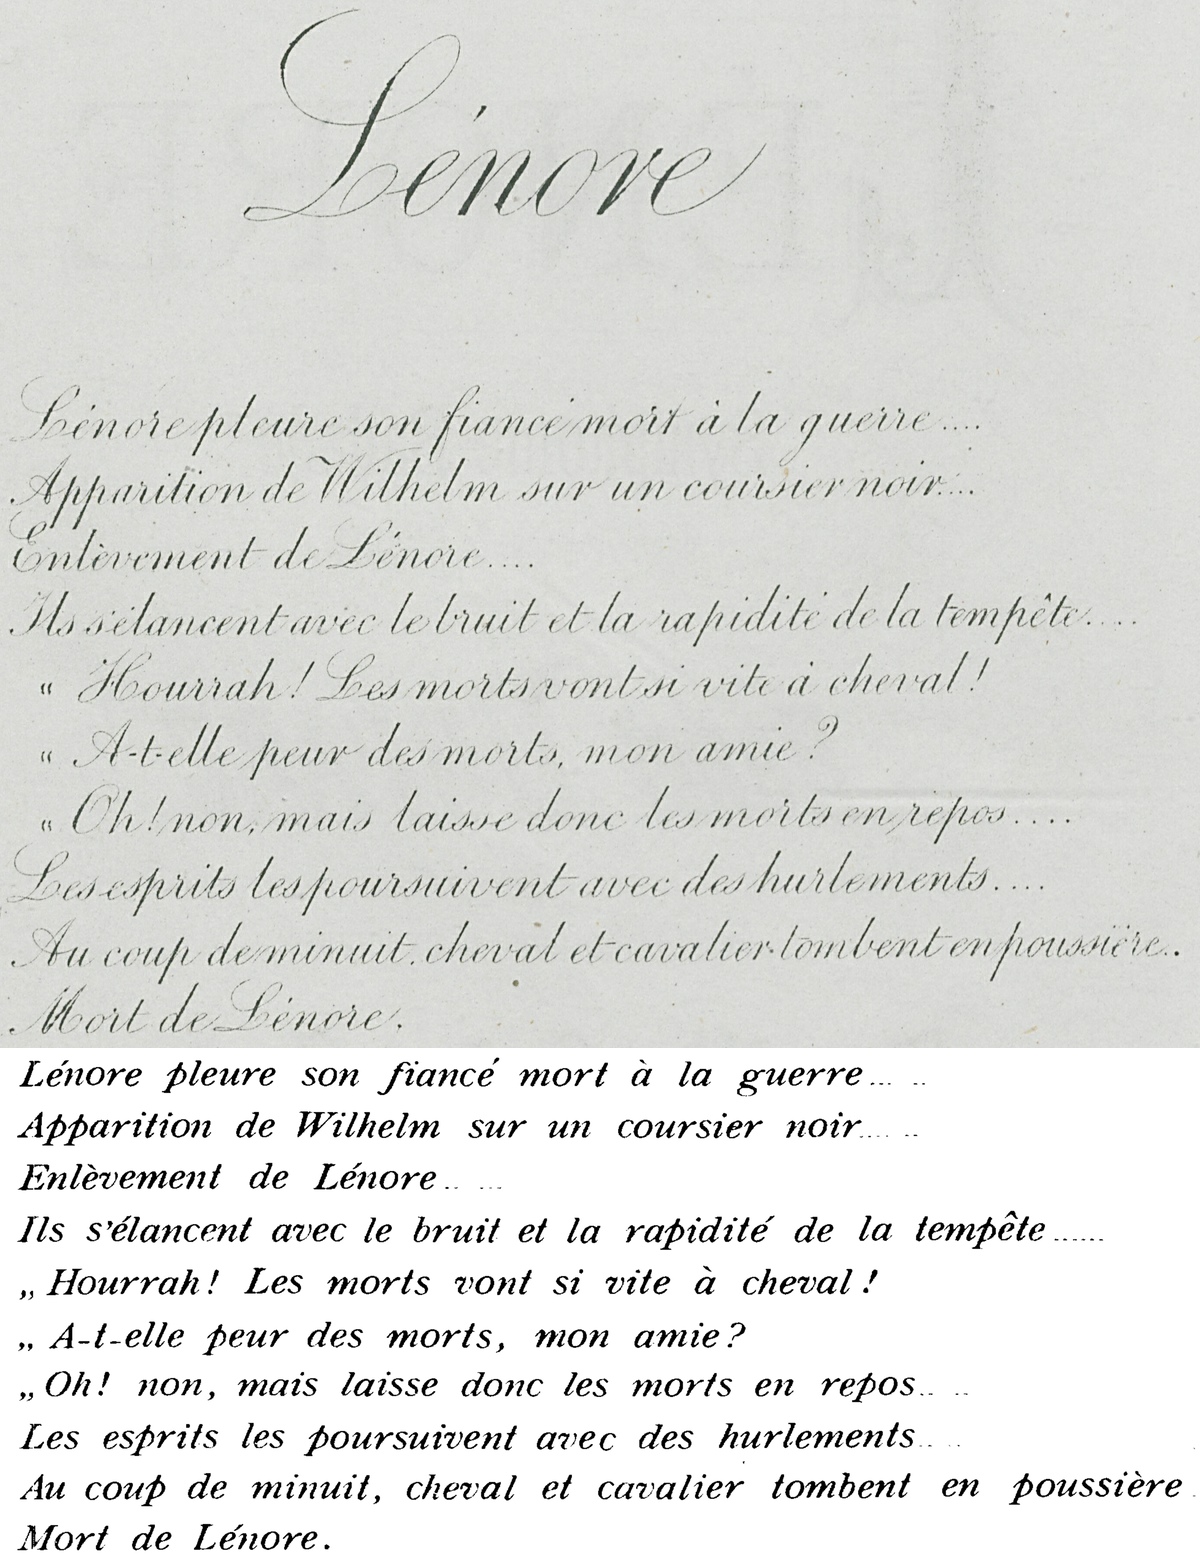 Lénore
Lénore pleure son fiancé mort à la guerre....
Apparition de Wilhelm sur un coursier noir....
Enlèvement de Lénore....
Ils s'élancent avec le bruit et la rapidité de la tempête....
" Hourrah! Les morts vont si vite à cheval!
" A-t-elle peur des morts, mon amie?
" Oh! non, mais laisse donc les morts en repos....
Les esprits les poursuivent avec des hurlements....
Au coup de minuit, cheval et cavalier tombent en poussière..
Mort de Lénore.
Lénore pleure son fiancé mort à la guerre... ..
Apparition de Wilhelm sur un coursier noir.... ..
Enlèvement de Lénore.. ...
Ils s'élancent avec le bruit et la rapidité de la tempête......
„ Hourrah! Les morts vont si vite à cheval!
„ A-t-elle peur des morts, mon amie?
„ Oh! non, mais laisse donc les morts en repos.. ..
Les esprits les poursuivent avec des hurlements.. ..
Au coup de minuit, cheval et cavalier tombent en poussière
Mort de Lénore.